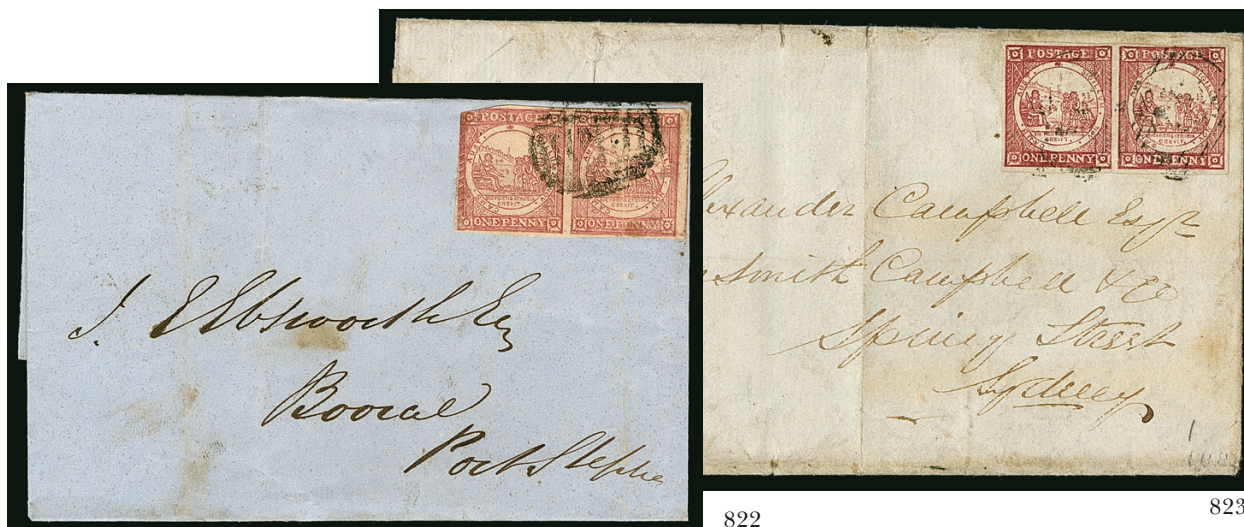 POSTAGE
POSTAGE
ONE PENNY
ONE PENNY
J. E Ebsworth Esq
Booral
Port Stephe
822
POSTAGE
POSTAGE
ONE PENNY
ONE PENNY
lexander Campbell Esqr
Smith Campbell & Co
Spring Street
Sydney
823